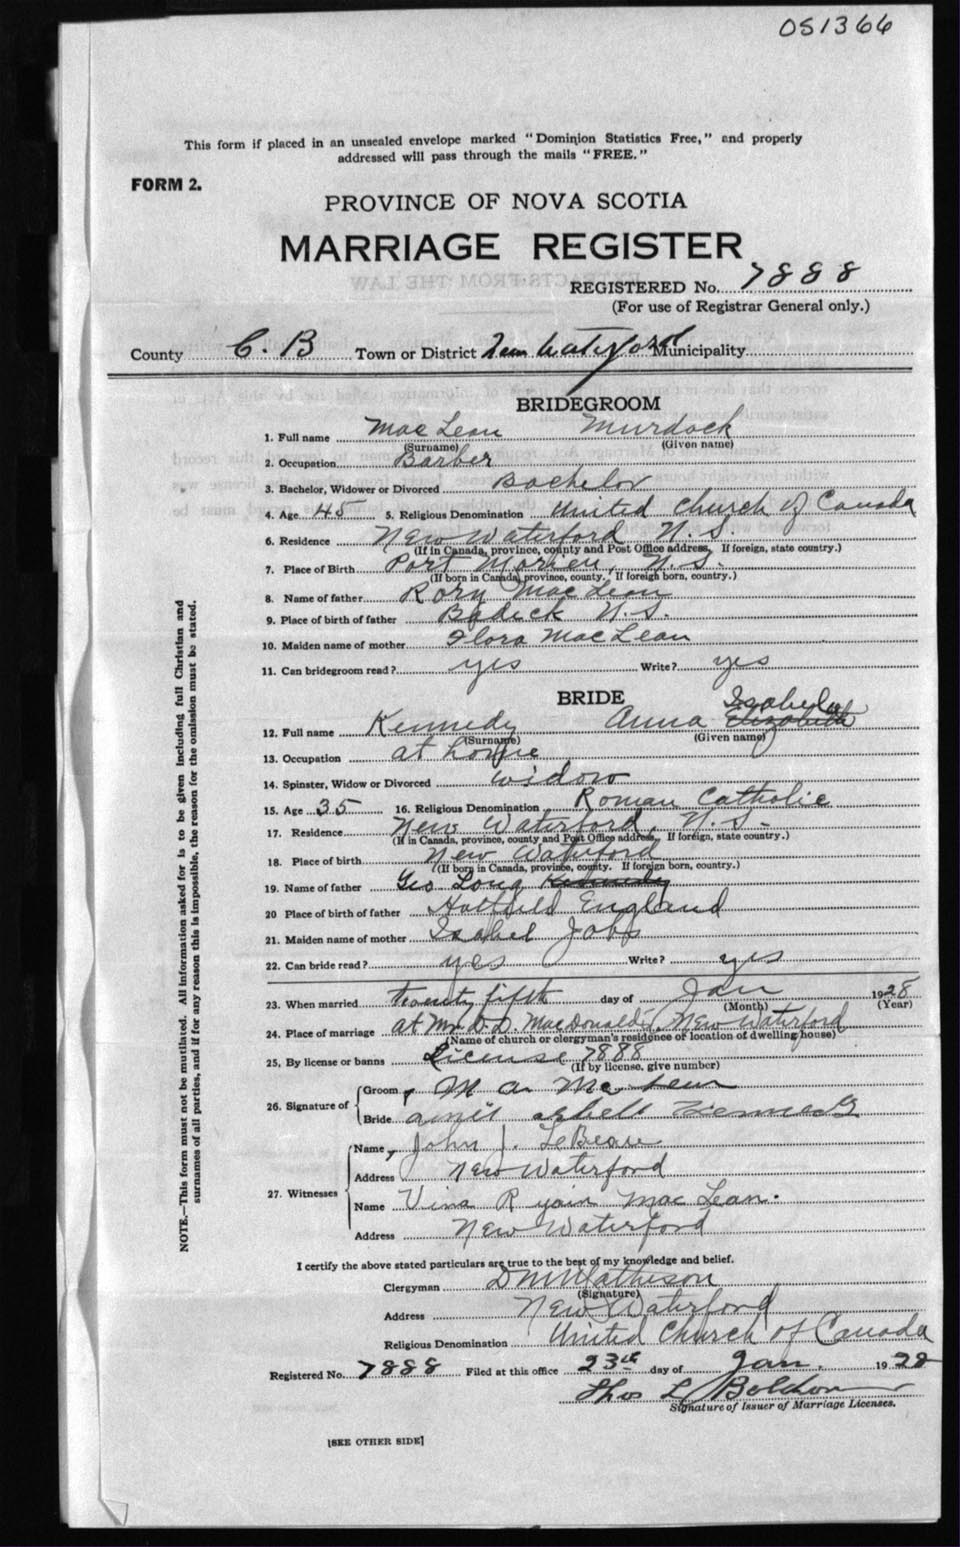 OS1366
This form if placed in an unsealed envelope marked "Dominion Statistics Free," and properly
addressed will pass through the mails "FREE."
FORM 2.
PROVINCE OF NOVA SCOTIA
MARRIAGE REGISTER
REGISTERED No. 7888
(For use of Registrar General only.)
County C. B Town or District New Waterford Municipality
BRIDEGROOM
1. Full name MacLean Murdock
(Surname) (Given name)
2. Occupation Barber
3. Bachelor, Widower or Divorced Bachelor
4. Age 45 5. Religious Denomination United Church of Canada
6. Residence New Waterford N. S.
(If in Canada, province, county and Post Office address, If foreign, state country.)
7. Place of Birth Port Morien, N. S.
(If born in Canada, province, county. If foreign born, country.)
8. Name of father Rory MacLean
9. Place of birth of father Badeck N. S.
10. Maiden name of mother Flora MacLean
11. Can bridegroom read? yes Write? yes
BRIDE Isabela
12. Full name Kennedy Anna Elizabeth
(Surname) (Given name)
13. Occupation at home
14. Spinster, Widow or Divorced widow
15. Age 35 16. Religious Denomination Roman Catholic
17. Residence New Waterford, N. S.
(If in Canada, province, county and Post Office address, If foreign, state country.)
18. Place of birth New Waterford
(If born in Canada, province, county. If foreign born, country.)
19. Name of father Geo Long Kennedy
20 Place of birth of father England
21. Maiden name of mother Isabel
22. Can bride read? yes Write? yes
23. When married twenty fifth day of Jan 1928
(Month) (Year)
24. Place of marriage at Mr. D. D. MacDonald's, New Waterford
(Name of church or clergyman's residence or location of dwelling house)
25. By license or banns License 7888
(If by license, give number)
26. Signature of Groom M
Bride
27. Witnesses Name John J. LeBeau
Address New Waterford
Name Vina Ryan MacLean.
Address New Waterford
I certify the above stated particulars are true to the best of my knowledge and belief.
Clergyman D M Matheson
(Signature)
Address New Waterford
Religious Denomination United Church of Canada
Registered No. 7888 Filed at this office 23rd day of Jan. 1928
Thos L
Signature of Issuer of Marriage Licenses.
[SEE OTHER SIDE]
NOTE.—This form must not be mutilated. All information asked for is to be given including full Christian and
surnames of all parties, and if for any reason this is impossible, the reason for the omission must be stated.